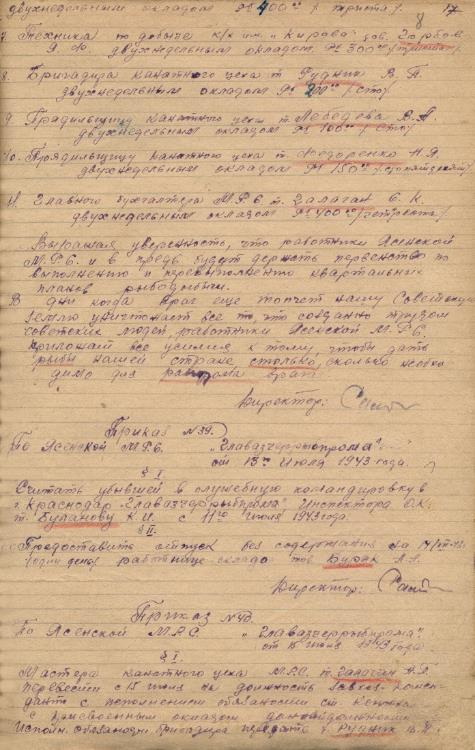 двухнедельным окладом № 400 00 / триста/. 17
8
7. Техника по добыче к/х им. „Кирова" тов. Горбов
двухнедельным окладом № 300 00
8. Бригадира канатного цеха т. Рудник В. П.
двухнедельным окладом № 200 00 / сто/
9. Прядильщицу канатного цеха т. Лебедова В. П.
двухнедельным окладом № 100 00 / сто/
10. Прядильщицу канатного цеха т. Федоренко Н. Я.
двухнедельным окладом № 150 00
11. Главного бухгалтера М.Р.С. т. Галаган С. К.
двухнедельным окладом № 400 00
Выражая уверенность, что работники Ясенской
М.Р.С. и в предь будут держать первенство по
выполнению и перевыполнению квартальных
планов рыводобычи.
В дни когда враг еще топчет нашу Советскую
землю уничтожает все то, что создано трудом
советских людей, работники Ясенской М.Р.С.
приложат все усилия к тому, чтобы дать
рыбы нашей стране столько, сколько необхо
димо для разгрома врага.
Директор:
Приказ №39.
По Ясенской М.Р.С. „Главазчеррыбпрома"
от 13го Июля 1943 года.
§ I
Считать убывшей в служебную командировку в
г. Краснодар „Главазчеррыбпрома" Инспектора О.К.
т. Буланову К.И. с 11го Июля 1943 года.
§ II.
Предоставить отпуск без содержания на 14
дней работнице склада тов Бурак А.А.
Директор:
Приказ №40
По Ясенской М.Р.С. „Главазчеррыбпрома"
от 15 июля 1943 года
§ I.
Мастера канатного цеха М.Р.С. т. Галаган
перевести с 15 июля на должность завхоз. комен
дант с исполнением обязаности
с присвоенным окладом
Исполн. обязаности бригадира передать т. Рудник В. П.